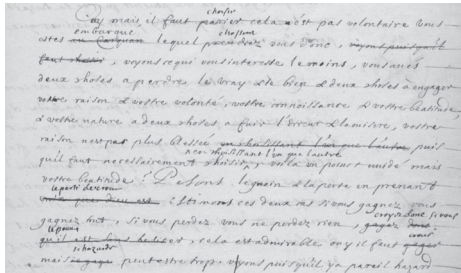 choisir
Ouy mais, il faut parier cela n'est pas volontaire vous
embarqué choisirez
estes lequel prendrez vous donc, voyons puisqu'il
faut choisir, voyons ce qui vous interesse le moins, vous avés
deux choses a perdre, le vray & le bien & deux choses à engager
vostre raison & vostre volonté, vostre connoissance & vostre beatitude,
& vostre nature a deux choses a fuir l'erreur & la misere, vostre
raison n'est pas plus blessée en choisissant l'un que l'autre puis
en choisissant l'un que l'autre
qu'il faut necessairement choisir, voila un point vuidé mais
vostre beatitude? Pesons le gain & la perte en prenant
le parti de croire
que dieu est : Estimons ces deux cas si vous gagnez vous
croyez donc si vous
gagnez tout, si vous perdez vous ne perdez rien, gagez donc
le pouvez croire
qu'il est sans hesiter, cela est admirable ouy il faut gager
hazarder
mais je gage peut estre trop. voyons puisqu'il y a pareil hazard